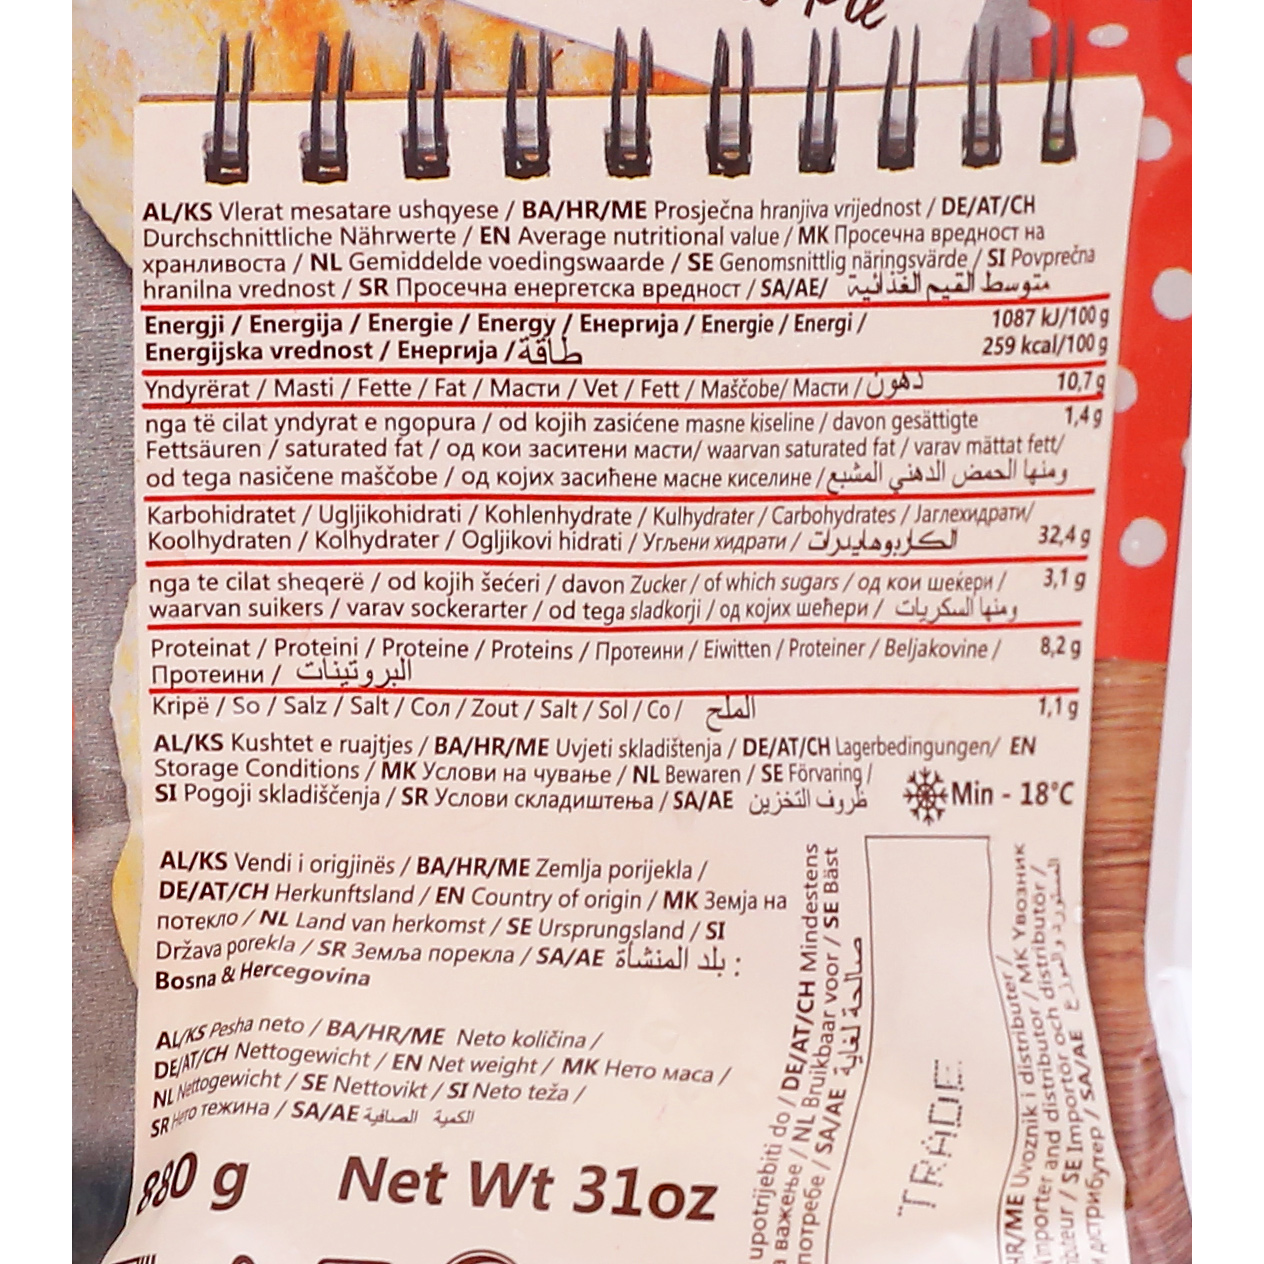 AL/KS Vlerat mesatare ushqyese / BA/HR/ME Prosječna hranjiva vrijednost / DE/AT/CH
Durchschnittliche Nährwerte / EN Average nutritional value / MK Просечна вредност на
хранливоста / NL Gemiddelde voedingswaarde / SE Genomsnittlig näringsvärde / SI Povprečna
hranilna vrednost / SR Просечна енергетска вредност / SA/AE/ متوسط القيم الغذائية
Energji / Energija / Energie / Energy / Енергија / Energie / Energi / 1087 kJ/100 g
Energijska vrednost / Енергија / طاقة 259 kcal/100 g
Yndyrërat / Masti / Fette / Fat / Масти / Vet / Fett / Maščobe/ Масти / دهون 10,7 g
nga të cilat yndyrat e ngopura / od kojih zasićene masne kiseline / davon gesättigte 1,4 g
Fettsäuren / saturated fat / од кои заситени масти/ waarvan saturated fat / varav mättat fett/
od tega nasičene maščobe / од којих засићене масне киселине / ومنها الحمض الدهني المشبع
Karbohidratet / Ugljikohidrati / Kohlenhydrate / Kulhydrater / Carbohydrates / Јаглехидрати/
Koolhydraten / Kolhydrater / Ogljikovi hidrati / Угљени хидрати / الكاربوهايدرات 32,4 g
nga te cilat sheqerë / od kojih šećeri / davon Zucker / of which sugars / од кои шеќери / 3,1 g
waarvan suikers / varav sockerarter / od tega sladkorji / од којих шећери / ومنها السكريات
Proteinat / Proteini / Proteine / Proteins / Протеини / Eiwitten / Proteiner / Beljakovine / 8,2 g
Протеини / البروتينات
Kripë / So / Salz / Salt / Сол / Zout / Salt / Sol / Со / الملح 1,1 g
AL/KS Kushtet e ruajtjes / BA/HR/ME Uvjeti skladištenja / DE/AT/CH Lagerbedingungen/ EN
Storage Conditions / MK Услови на чување / NL Bewaren / SE Förvaring /
SI Pogoji skladiščenja / SR Услови складиштења / SA/AE ظروف التخزين Min - 18°C
AL/KS Vendi i origjinës / BA/HR/ME Zemlja porijekla /
DE/AT/CH Herkunftsland / EN Country of origin / MK Земја на
потекло / NL Land van herkomst / SE Ursprungsland / SI
Država porekla / SR Земља порекла / SA/AE بلد المنشأة :
Bosna & Hercegovina
AL/KS Pesha neto / BA/HR/ME Neto količina /
DE/AT/CH Nettogewicht / EN Net weight / MK Нето маса /
NL Nettogewicht / SE Nettovikt / SI Neto teža /
SR Нето тежина / SA/AE الكمية الصافية
880 g Net Wt 31oz
upotrijebiti do / DE/AT/CH Mindestens
важење / NL Bruikbaar voor / SE Bäst
потребе / SA/AE صالحة لغاية
TRADE
HR/ME Uvoznik i distributer /
importer and distributor / MK Увозник
SE Importör och distributör /
дистрибутер / SA/AE المستورد والموزع